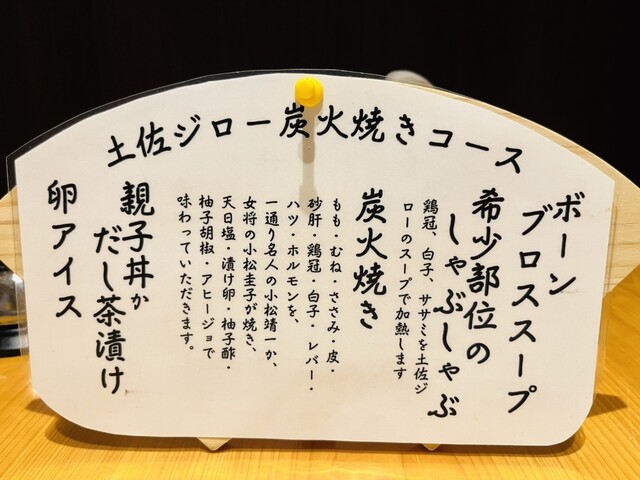 土佐ジロー炭火焼きコース
ボーン
ブロススープ
希少部位の
しゃぶしゃぶ
鶏冠、白子、ササミを土佐ジ
ローのスープで加熱します
炭火焼き
もも・むね・ささみ・皮・
砂肝・鶏冠・白子・レバー・
ハツ・ホルモンを、
一通り名人の小松靖一か、
女将の小松圭子が焼き、
天日塩・漬け卵・柚子酢・
柚子胡椒・アヒージョで
味わっていただきます。
親子丼か
だし茶漬け
卵アイス